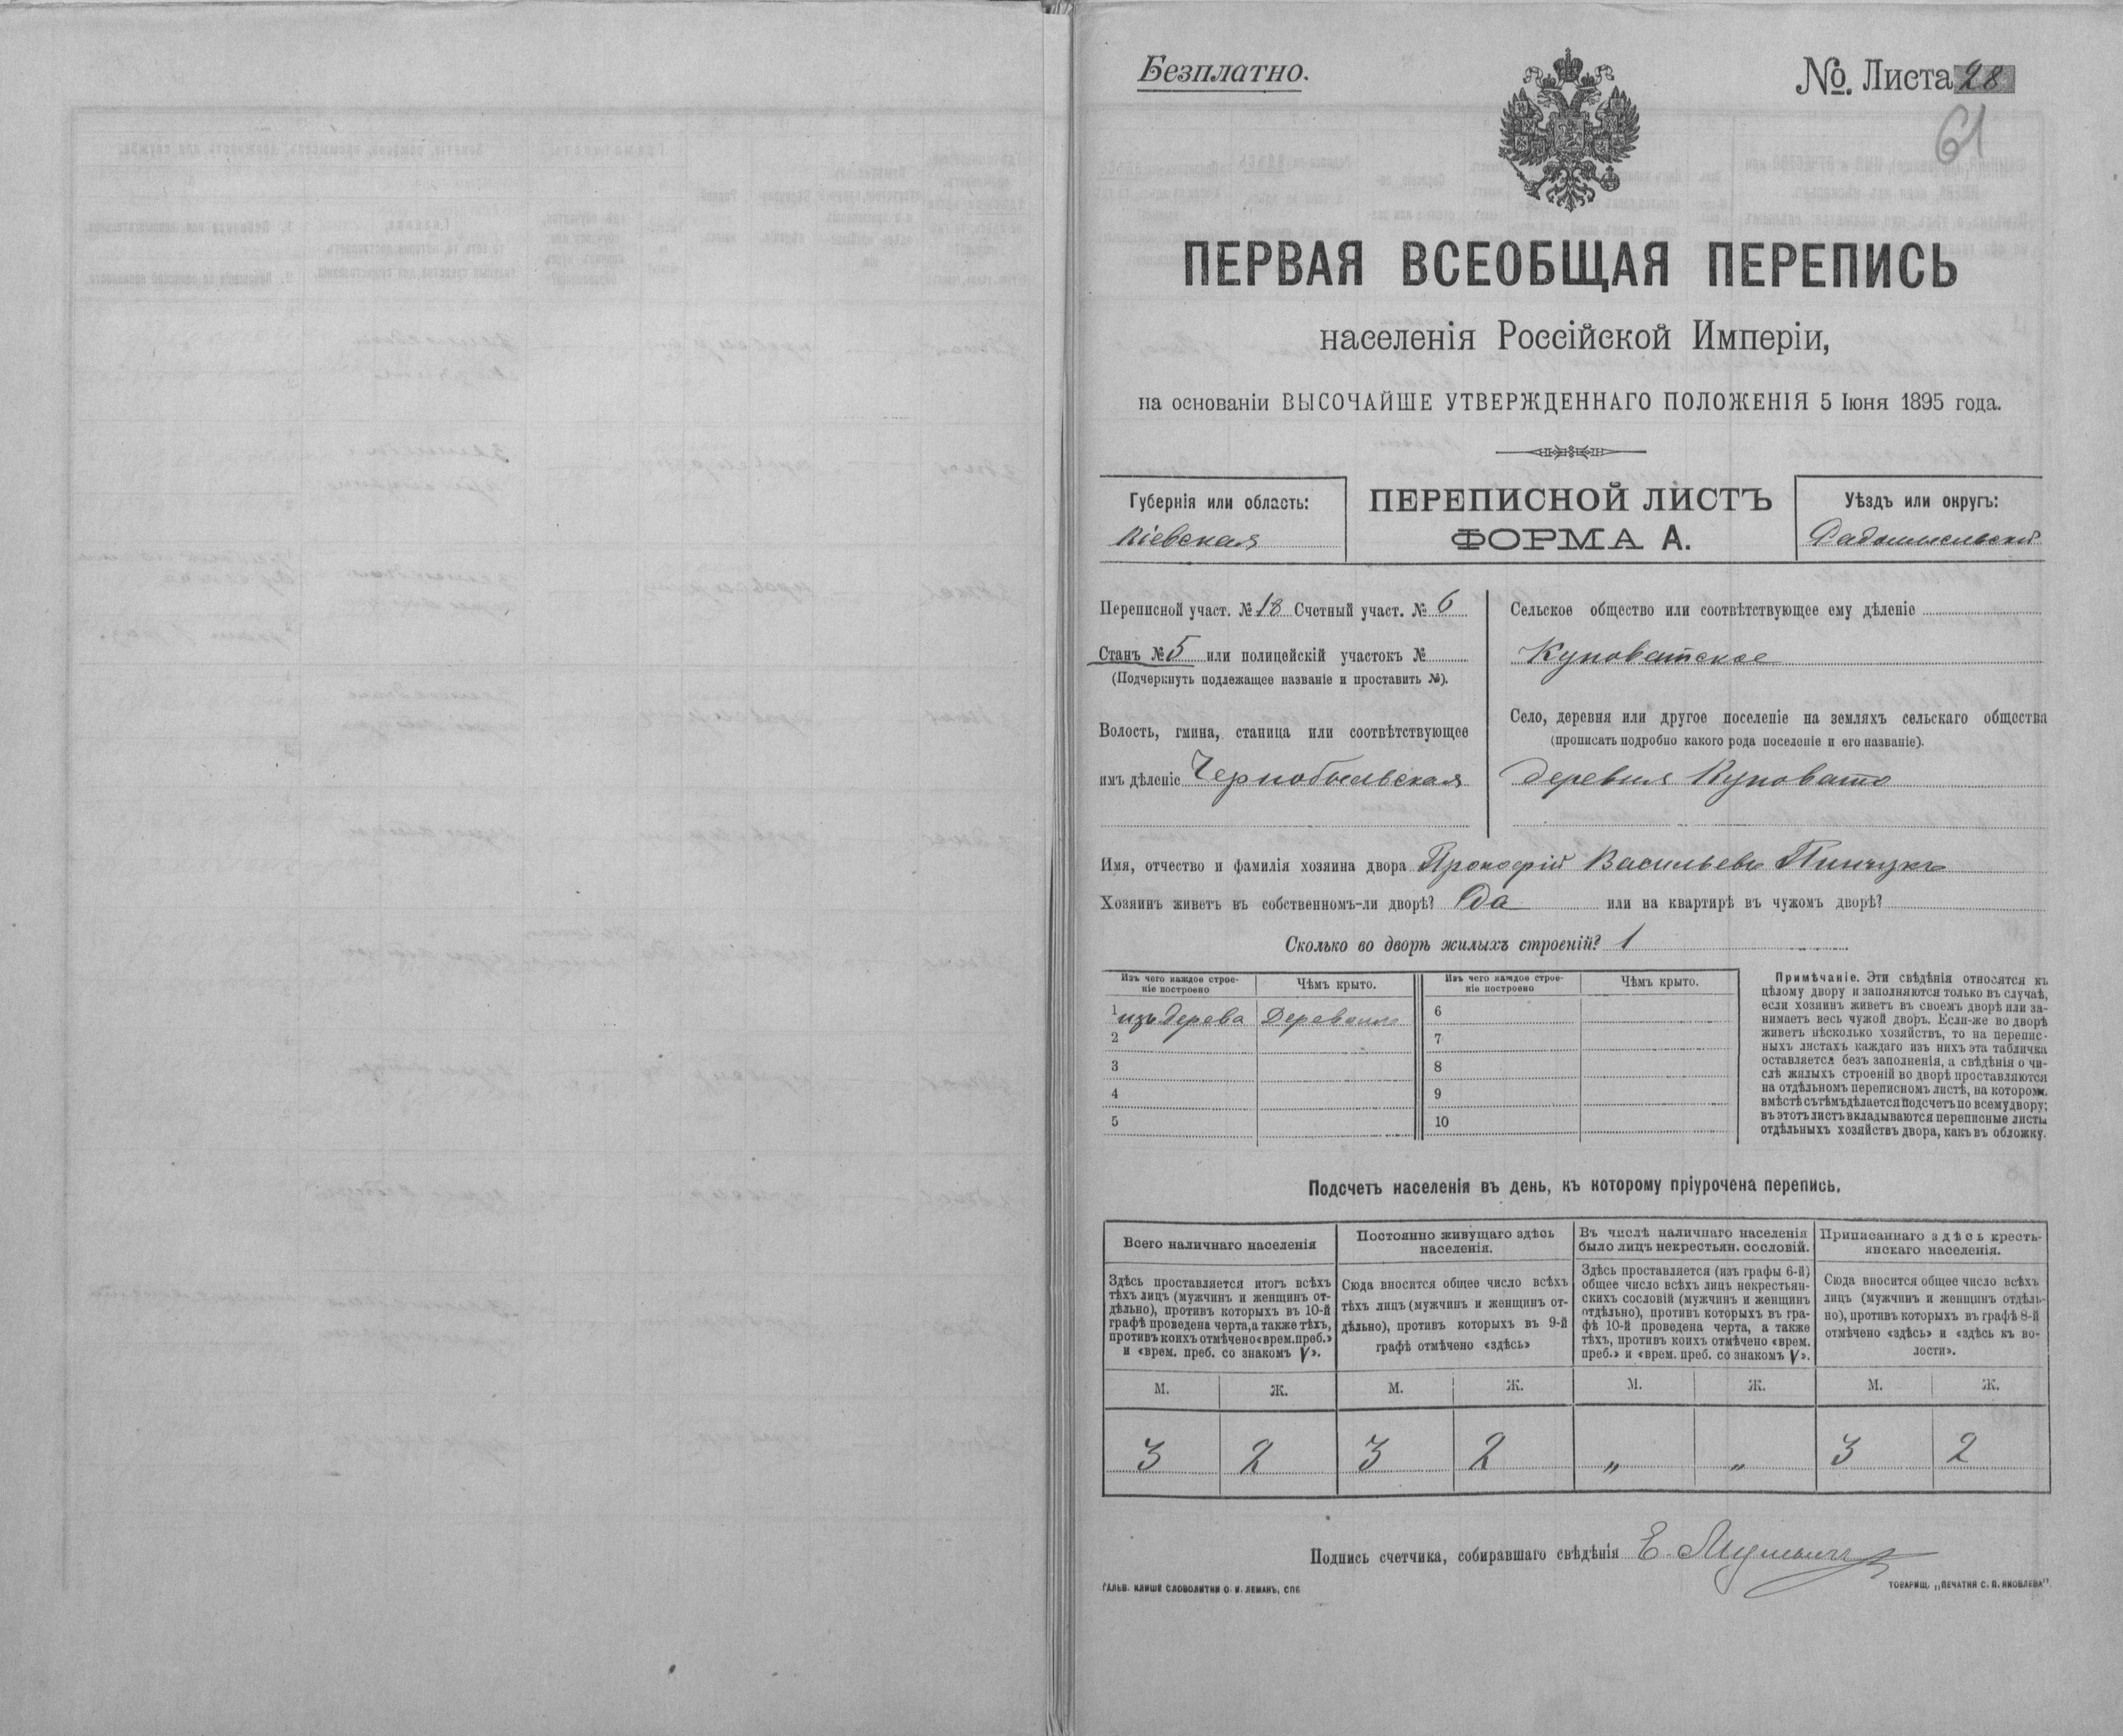 Безплатно.
№. Листа 28
61
ПЕРВАЯ ВСЕОБЩАЯ ПЕРЕПИСЬ
населенія Россійской Имперіи,
на основаніи ВЫСОЧАЙШЕ УТВЕРЖДЕННАГО ПОЛОЖЕНІЯ 5 Іюня 1895 года.
Губернія или область:
Кіевская
ПЕРЕПИСНОЙ ЛИСТЪ
ФОРМА А.
Уѣздъ или округъ:
Радомысльскій
Переписной участ. № 18 Счетный участ. № 6
Станъ № 5 или полицейскій участокъ №
(Подчеркнуть подлежащее названіе и проставить №).
Волость, гмина, станица или соотвѣтствующее
имъ дѣленіе Чернобыльская
Сельское общество или соотвѣтствующее ему дѣленіе
Куповатское
Село, деревня или другое поселеніе на земляхъ сельскаго общества
(прописать подробно какого рода поселеніе и его названіе).
деревня Куповато
Имя, отчество и фамилія хозяина двора Прокофій Васильевъ Пинчукъ
Хозяинъ живетъ въ собственномъ-ли дворѣ? Да или на квартирѣ въ чужомъ дворѣ?
Сколько во дворѣ жилыхъ строеній? 1
Изъ чего каждое строе-
ніе построено
Чѣмъ крыто.
Изъ чего каждое строе-
ніе построено
Чѣмъ крыто.
1 изъ дерева Деревомъ 6
2 7
3 8
4 9
5 10
Примѣчаніе. Эти свѣдѣнія относятся къ
цѣлому двору и заполняются только въ случаѣ,
если хозяинъ живетъ въ своемъ дворѣ или за-
нимаетъ весь чужой дворъ. Если-же во дворѣ
живетъ нѣсколько хозяйствъ, то на перепис-
ныхъ листахъ каждаго изъ нихъ эта табличка
оставляется безъ заполненія, а свѣдѣнія о чи-
слѣ жилыхъ строеній во дворѣ проставляются
на отдѣльномъ переписномъ листѣ, на которомъ
вмѣстѣ съ тѣмъ дѣлается подсчетъ по всему двору;
въ этотъ листъ вкладываются переписные листы
отдѣльныхъ хозяйствъ двора, какъ въ обложку.
Подсчетъ населенія въ день, къ которому пріурочена перепись.
Всего наличнаго населенія
Здѣсь проставляется итогъ всѣхъ
тѣхъ лицъ (мужчинъ и женщинъ от-
дѣльно), противъ которыхъ въ 10-й
графѣ проведена черта, а также тѣхъ,
противъ коихъ отмѣчено «врем. преб.»
и «врем. преб. со знакомъ V».
Постоянно живущаго здѣсь
населенія.
Сюда вносится общее число всѣхъ
тѣхъ лицъ (мужчинъ и женщинъ от-
дѣльно), противъ которыхъ въ 9-й
графѣ отмѣчено «здѣсь»
Въ числѣ наличнаго населенія
было лицъ некрестьян. сословій.
Здѣсь проставляется (изъ графы 6-й)
общее число всѣхъ лицъ некрестьян-
скихъ сословій (мужчинъ и женщинъ
отдѣльно), противъ которыхъ въ гра-
фѣ 10-й проведена черта, а также
тѣхъ, противъ коихъ отмѣчено «врем.
преб.» и «врем. преб. со знакомъ V».
Приписаннаго здѣсь кресть-
янскаго населенія.
Сюда вносится общее число всѣхъ
лицъ (мужчинъ и женщинъ отдѣль-
но), противъ которыхъ въ графѣ 8-й
отмѣчено «здѣсь» и «здѣсь къ во-
лости».
М. Ж. М. Ж. М. Ж. М. Ж.
3 2 3 2 „ „ 3 2
Подпись счетчика, собиравшаго свѣдѣнія Е.
ГАЛЬВ. КЛИШЕ СЛОВОЛИТНИ О. И. ЛЕМАНЪ, СПБ
ТОВАРИЩ. „ПЕЧАТНЯ С. П. ЯКОВЛЕВА".